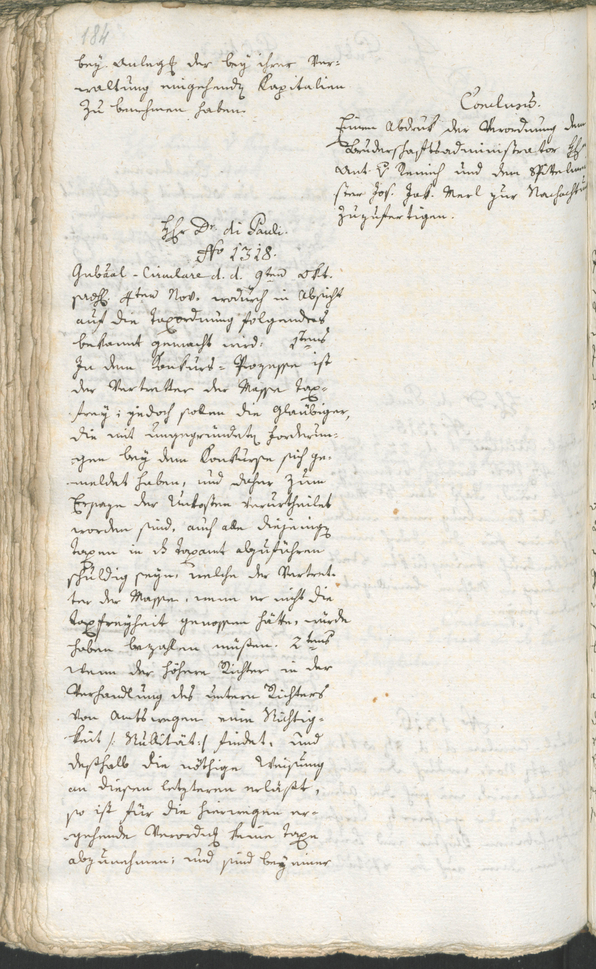 184
bey Anlegg der bey ihrer Ver-
waltung eingehendn Kapitalien
zu benehmen haben.
Conclusum.
Einen Abdruk der Verordnung dem
Bruderschaftsadministrator H.
Ant. v Remich und dem Spitelmei
ster Jos. Jak. Merl zur Nachacht
zuzufertigen.
Hr. Dr. di Pauli.
No 1318.
Gubaal-Circulare d. d. 9ten Okt.
pres. 4ten Nov. wodurch in Absicht
auf die Taxordnung folgendes
bekannt gemacht wird: 1stens
In dem Konkurs-Prozesse ist
der Vertretter der Massa tax-
frey; jedoch sollen die Gläubiger,
die mit ungegründetn Forderun-
gen bey dem Konkurse sich ge-
meldet haben, und daher zum
Ersaze der Unkosten verurtheilet
worden sind, auch alle diejenign
Taxen in ds Taxamt abzuführen
schuldig seyn, welche der Vertret-
ter der Massa, wenn er nicht die
Taxfreyheit genossen hätte, würde
haben bezahlen müßen. 2tens
Wenn der höhere Richter in der
Verhandlung des untern Richters
von Amtswegen eine Nichtig-
keit /: Nullität :/ findet, und
deßhalb die nöthige Weisung
an diesen letzteren erläßt,
so ist für die hierwegen er-
gehende Verordng keine Taxe
abzunehmen; und sind bey einer